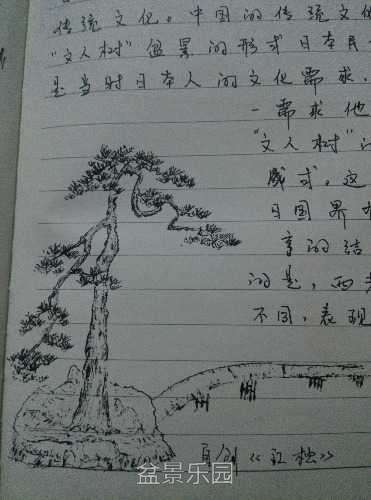 传统文化。中国的传统文
"文人树"盆景的形式日本民
是当时日本人的文化需求,
一需求他
"文人树"
威式,这
日国界
享的结
的是,两
不同,表现
自创《独》
盆景乐园